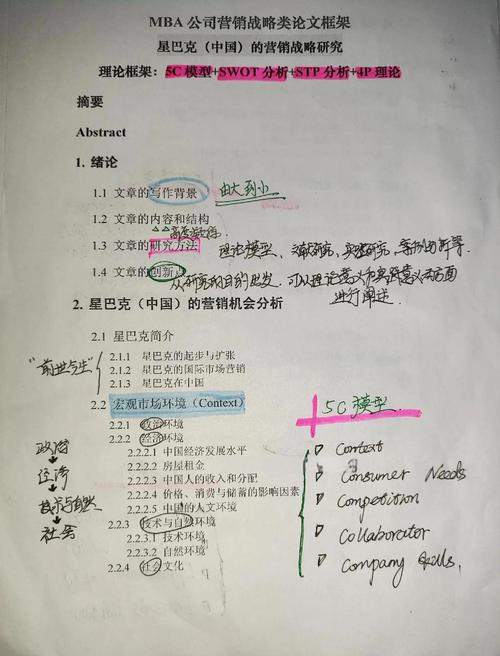 MBA 公司营销战略类论文框架
星巴克（中国）的营销战略研究
理论框架：5C 模型+SWOT 分析+STP 分析+4P 理论
摘要
Abstract
1. 绪论
1.1 文章的写作背景 由大到小
1.2 文章的内容和结构
高度凝练
1.3 文章的研究方法 理论模型、文献研究、实地研究、案例分析等.
1.4 文章的创新点 从研究的目的出发，可以理论意义和实践意义两方面
进行阐述.
2. 星巴克（中国）的营销机会分析
2.1 星巴克简介
"前世今生"
2.1.1 星巴克的起步与扩张
2.1.2 星巴克的国际市场营销
2.1.3 星巴克在中国
2.2 宏观市场环境（Context） 5C 模型.
2.2.1 政治环境
2.2.2 经济环境
2.2.2.1 中国经济发展水平
2.2.2.2 房屋租金
2.2.2.3 中国人的收入和分配
2.2.2.4 价格、消费与储蓄的影响因素
2.2.2.5 中国的人文环境
2.2.3 技术与自然环境
2.2.3.1 技术环境
2.2.3.2 自然环境
2.2.4 社会文化
政府
经济
技术与自然
社会
Context
Consumer Needs
Competition
Collaborator
Company Skills.